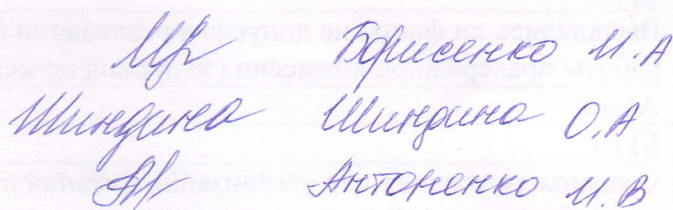 Борисенко И.А
Шиндина Шиндина О.А
Антоненко М.В